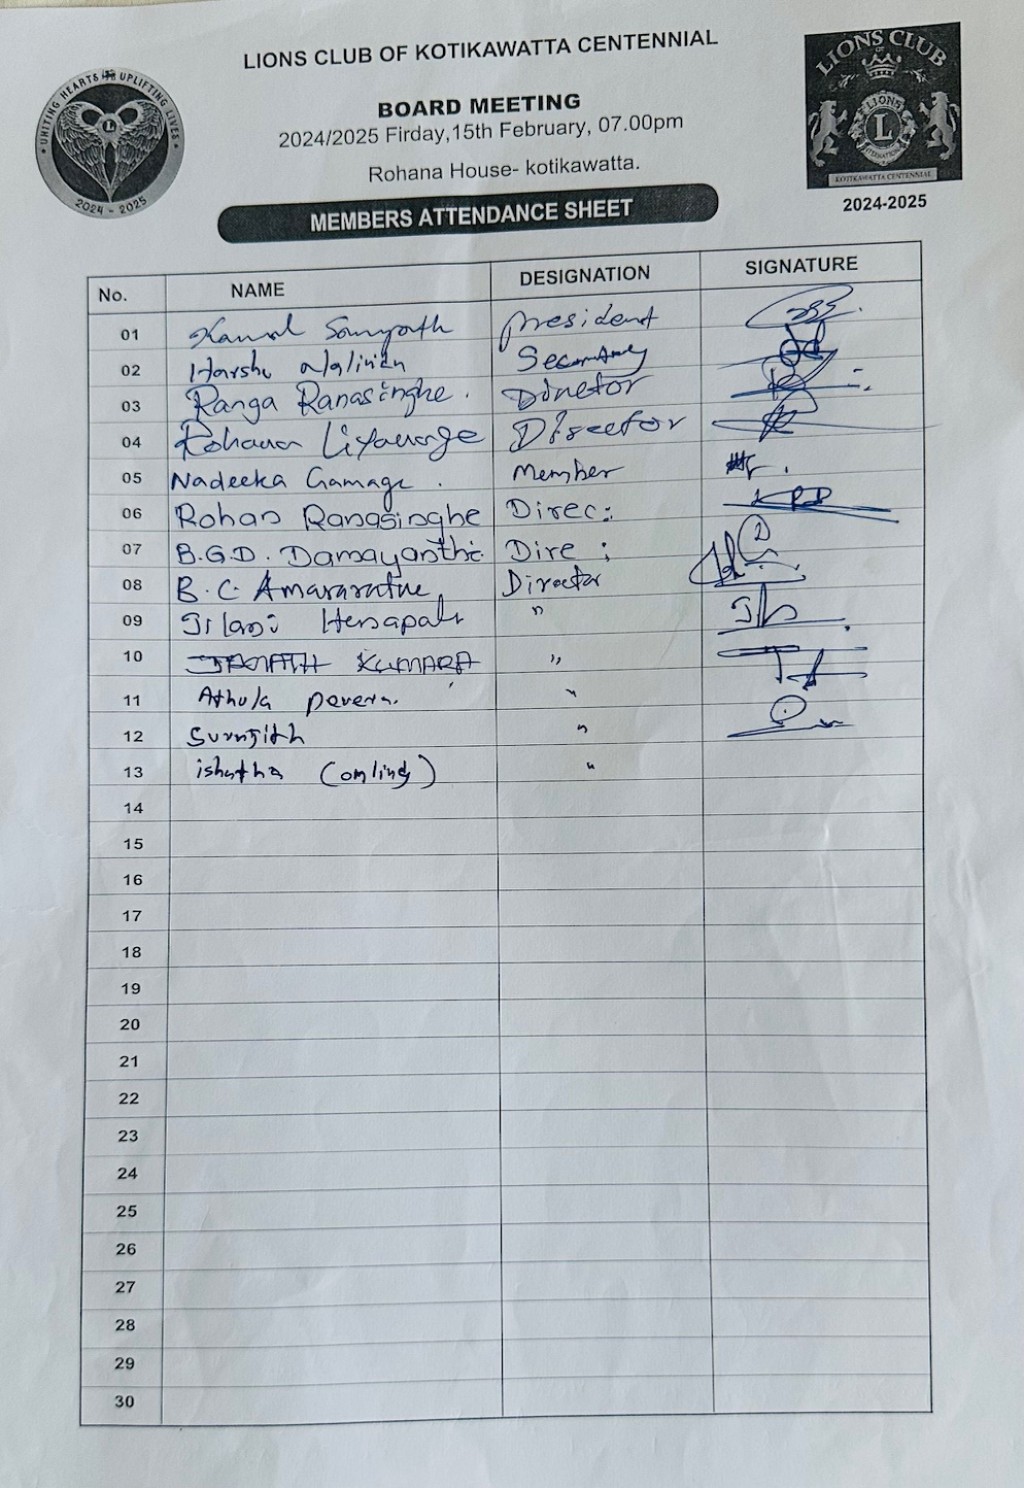 LIONS CLUB OF KOTIKAWATTA CENTENNIAL
BOARD MEETING
2024/2025 Firday,15th February, 07.00pm
Rohana House- kotikawatta.
MEMBERS ATTENDANCE SHEET
UNITING HEARTS UPLIFTING LIVES
2024 - 2025
LIONS CLUB
OF
LIONS
L
INTERNATIONAL
KOTIKAWATTA CENTENNIAL
2024-2025
No. NAME DESIGNATION SIGNATURE
01 Kamal President
02 Harsha Secretary
03 Ranga Ranasinghe. Director
04 Rohana Liyanage Director
05 Nadeeka Gamage. Member
06 Rohan Ranasinghe Direc:
07 B.G.D. Damayanthi Dire:
08 B.C. Amararatne Director
09 Jilani Henapala "
10 JANATH KUMARA "
11 Athula perera. "
12 Suranjith "
13 ishatha (online) "
14
15
16
17
18
19
20
21
22
23
24
25
26
27
28
29
30